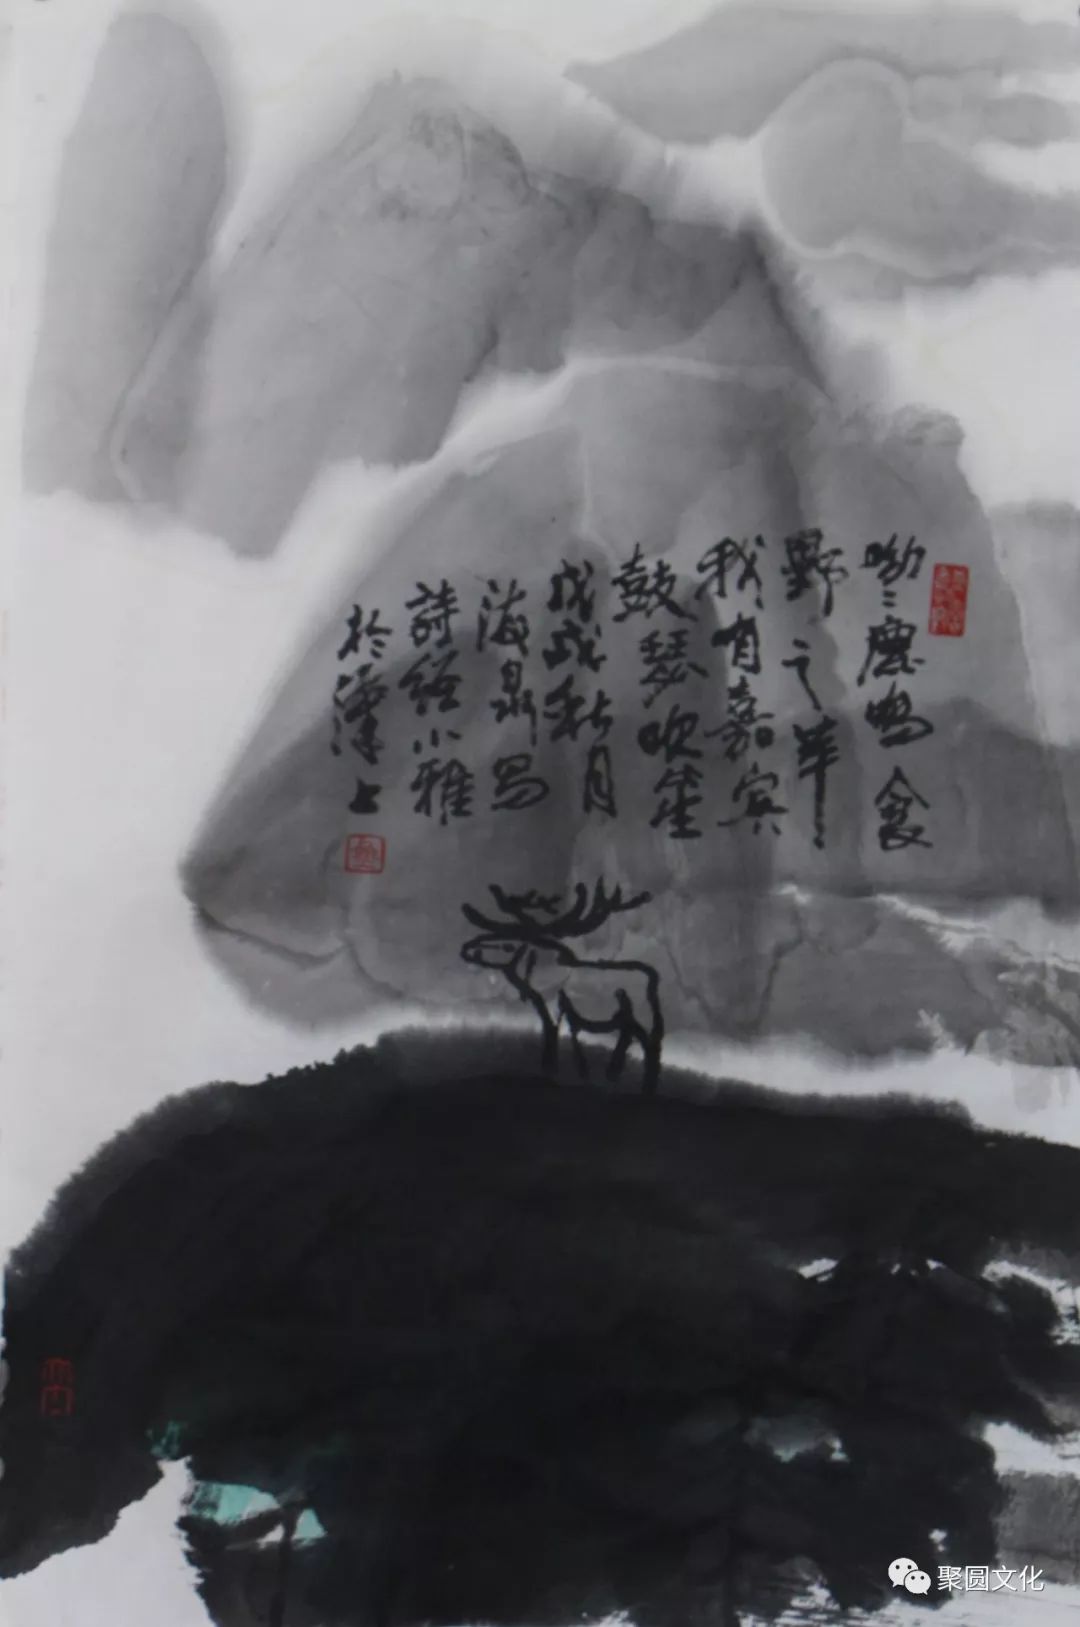 呦呦鹿鳴食
野之苹
我有嘉宾
鼓瑟吹笙
戊戌秋月
海泉写
詩經小雅
於上
聚圆文化